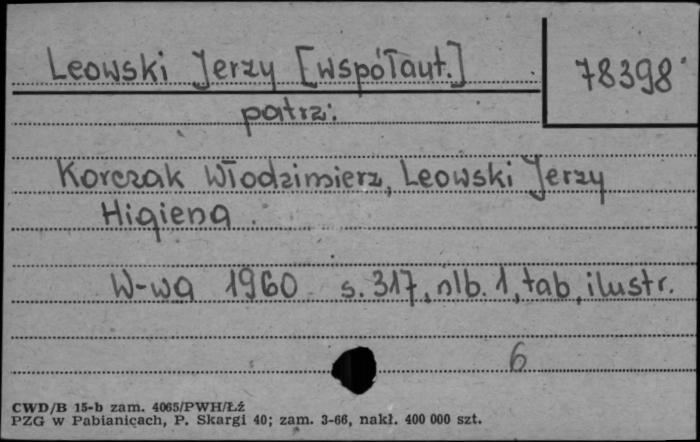 Leowski Jerzy [współaut.]
78398
patrz:
Korczak Włodzimierz, Leowski Jerzy
Higiena.
W-wa 1960 s. 317, nlb. 1, tab, ilustr.
6
CWD/B 15-b zam. 4065/PWH/Łź
PZG w Pabianicach, P. Skargi 40; zam. 3-66, nakł. 400 000 szt.